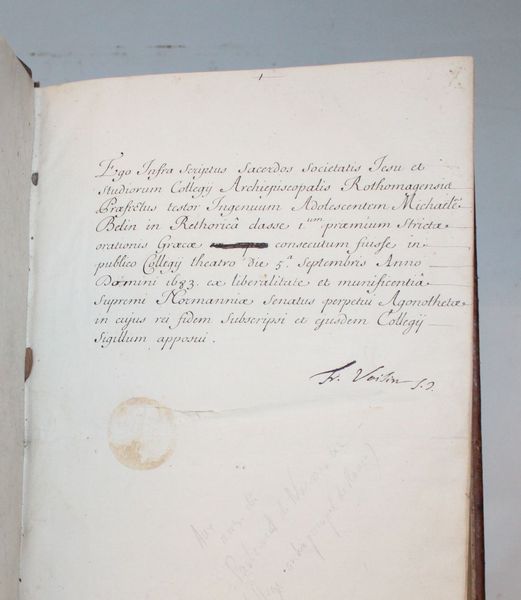 Ego Infra Scriptus Sacerdos Societatis Jesu et
Studiorum Collegÿ Archiepiscopalis Rothomagensis
Præfectus testor Ingenium Adolescentem Michaële
Belin in Rethoricâ classe 1um præmium Strictæ
orationis Græcæ consecutum fuisse in
publico Collegÿ theatro die 5a Septembris Anno
Domini 1683 ex liberalitate et munificentiâ
Supremi Normanniæ Senatus perpetui Agonothetæ
in cujus rei fidem Subscripsi et ejusdem Collegÿ
Sigillum apposui.
Fr. S.J.